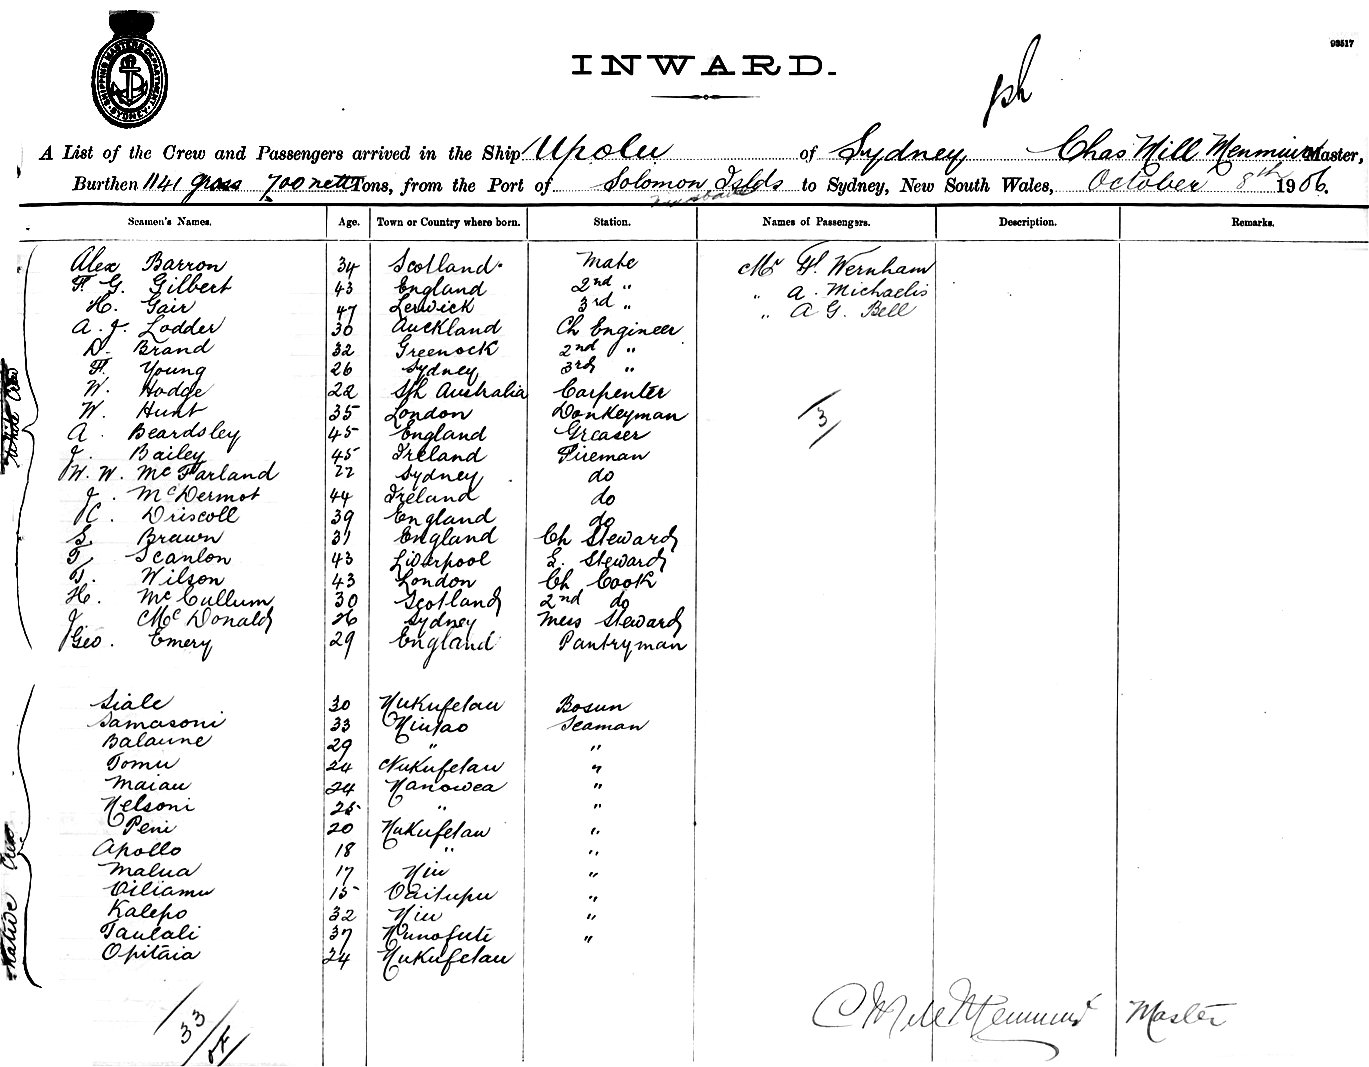 SHIPPING MASTERS DEPARTMENT
SYDNEY
93517
INWARD.
A List of the Crew and Passengers arrived in the Ship Upolu of Sydney, Chas Mill Menmuir Master,
Burthen 1141 gross 700 nett Tons, from the Port of Solomon Islds to Sydney, New South Wales, October 8th 1906.
Seamen's Names. Age. Town or Country where born. Station. Names of Passengers. Description. Remarks.
White Crew
Alex Barron 34 Scotland. Mate Mr F. Wernham
F. G. Gilbert 43 England 2nd " " A. Michaelis
H. Gair 47 Lerwick 3rd " " A G. Bell
A. J. Lodder 30 Auckland Ch Engineer
D. Brand 32 Greenock 2nd "
F. Young 26 Sydney 3rd "
W. Hodge 22 Sth Australia Carpenter
W. Hunt 35 London Donkeyman
A. Beardsley 45 England Greaser
J. Bailey 45 Ireland Fireman
W. W. McFarland 22 Sydney do
J. McDermot 44 Ireland do
C. Driscoll 39 England do
S. Brawn 31 England Ch Steward
T. Scanlon 43 Liverpool S. Steward
T. Wilson 43 London Ch Cook
H. McCullum 30 Scotland 2nd do
J. McDonald 26 Sydney Mess Steward
Geo. Emery 29 England Pantryman
3
Native Crew
Siale 30 Nukufetau Bosun
Samasoni 33 Niutao Seaman
Balaune 29 " "
Tomu 24 Nukufetau "
Maiau 24 Nanomea "
Nelsoni 25 " "
Peni 20 Nukufetau "
Apollo 18 " "
Malua 17 Niu "
Viliamu 15 Vaitupu "
Kalepo 32 Niu "
Taulali 37 Nunofuti "
Opitaia 24 Nukufetau
33
C Mill Menmuir Master